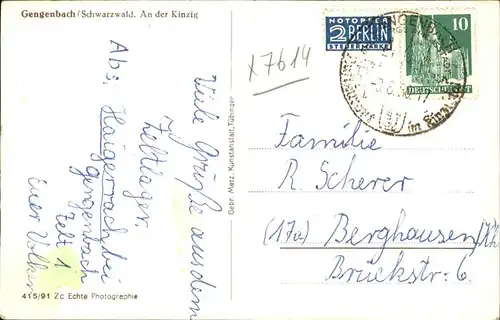 Gengenbach/Schwarzwald. An der Kinzig
Viele Grüße aus dem
Zeltlager.
Abs. Haigerach bei
Gengenbach
Zelt 1
Euer Volker
415/91 Zc Echte Photographie
Gebr. Metz, Kunstanstalt, Tübingen
x7614
NOTOPFER
2 BERLIN
STEUERMARKE
10
DEUTSCHE POST
GENGENBACH
im Kinzigtal
Familie
R. Scherer
(17a) Berghausen/
Brückstr. 6